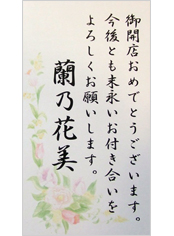 御開店おめでとうございます。
今後とも末永いお付き合いを
よろしくお願いします。
蘭乃花美